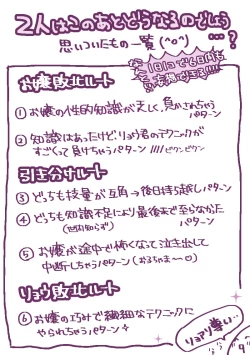 2人はこのあとどうなるのでしょう
…?
思いついたもの一覧(^o^)
1日1コで6日間も
妄想できる!!!!
お嬢敗北ルート
① お嬢の性的知識が乏しく、負かされちゃう
パターン
② 知識はあったけどリョウ君のテクニックが
すごくて負けちゃうパターン!!!! ビクンビクン
引き分けルート
③ どっちも技量が互角→後日持ち越しパターン
④ どっちも知識不足により最後まで至らなかった
(世間知らず) パターン
⑤ お嬢が途中で怖くなって泣き出して
中断しちゃうパターン
リョウ敗北ルート
⑥ お嬢の巧みで繊細なテクニックに
やられちゃうパターン
リョアリ尊い…